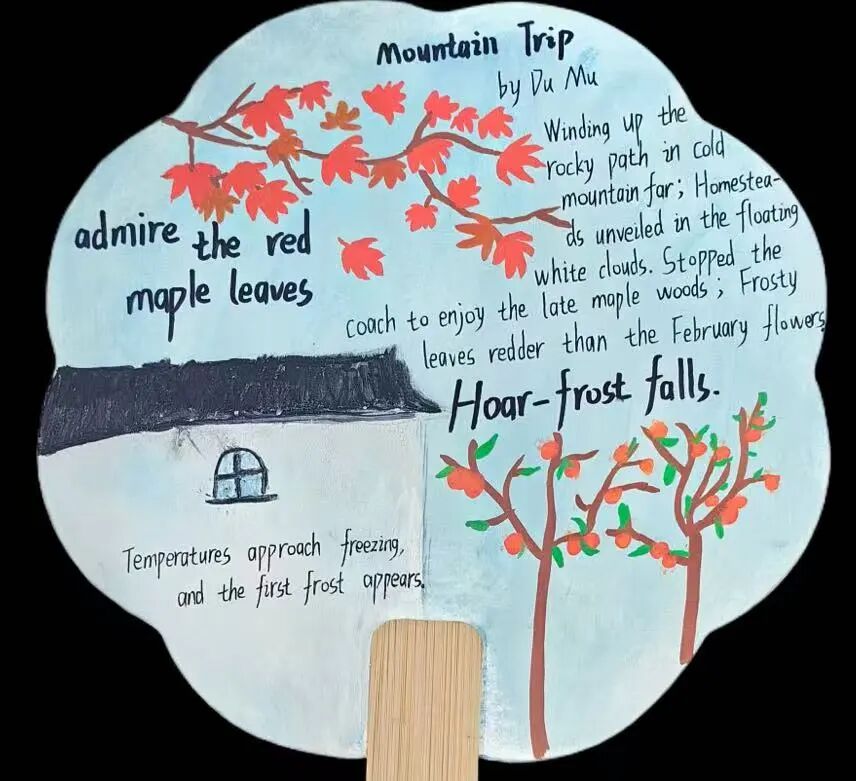 Mountain Trip
by Du Mu
Winding up the
rocky path in cold
mountain far; Homestea-
ds unveiled in the floating
white clouds. Stopped the
coach to enjoy the late maple woods; Frosty
leaves redder than the February flowers
admire the red
maple leaves
Hoar-frost falls.
Temperatures approach freezing,
and the first frost appears.